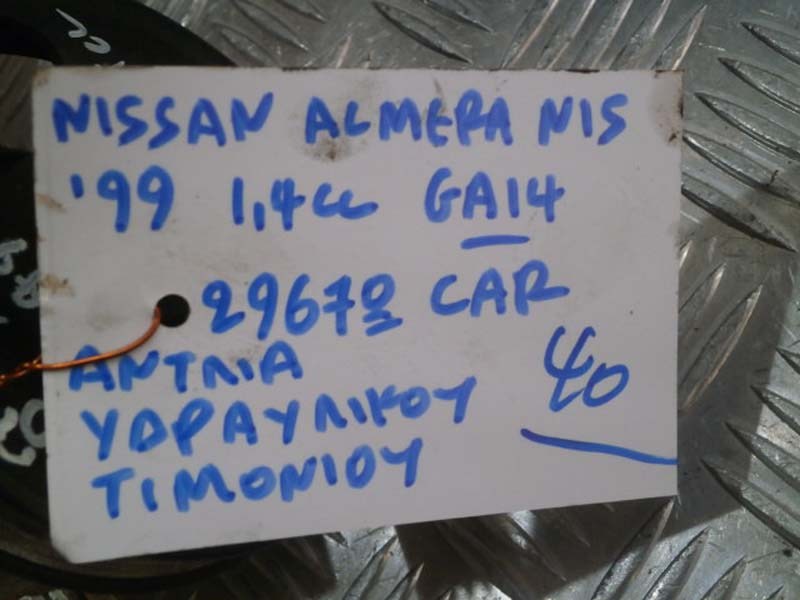 NISSAN ALMERA NIS
'99 1,4cc GA14
29670 CAR
ΑΝΤΛΙΑ
ΥΔΡΑΥΛΙΚΟΥ
ΤΙΜΟΝΙΟΥ
40